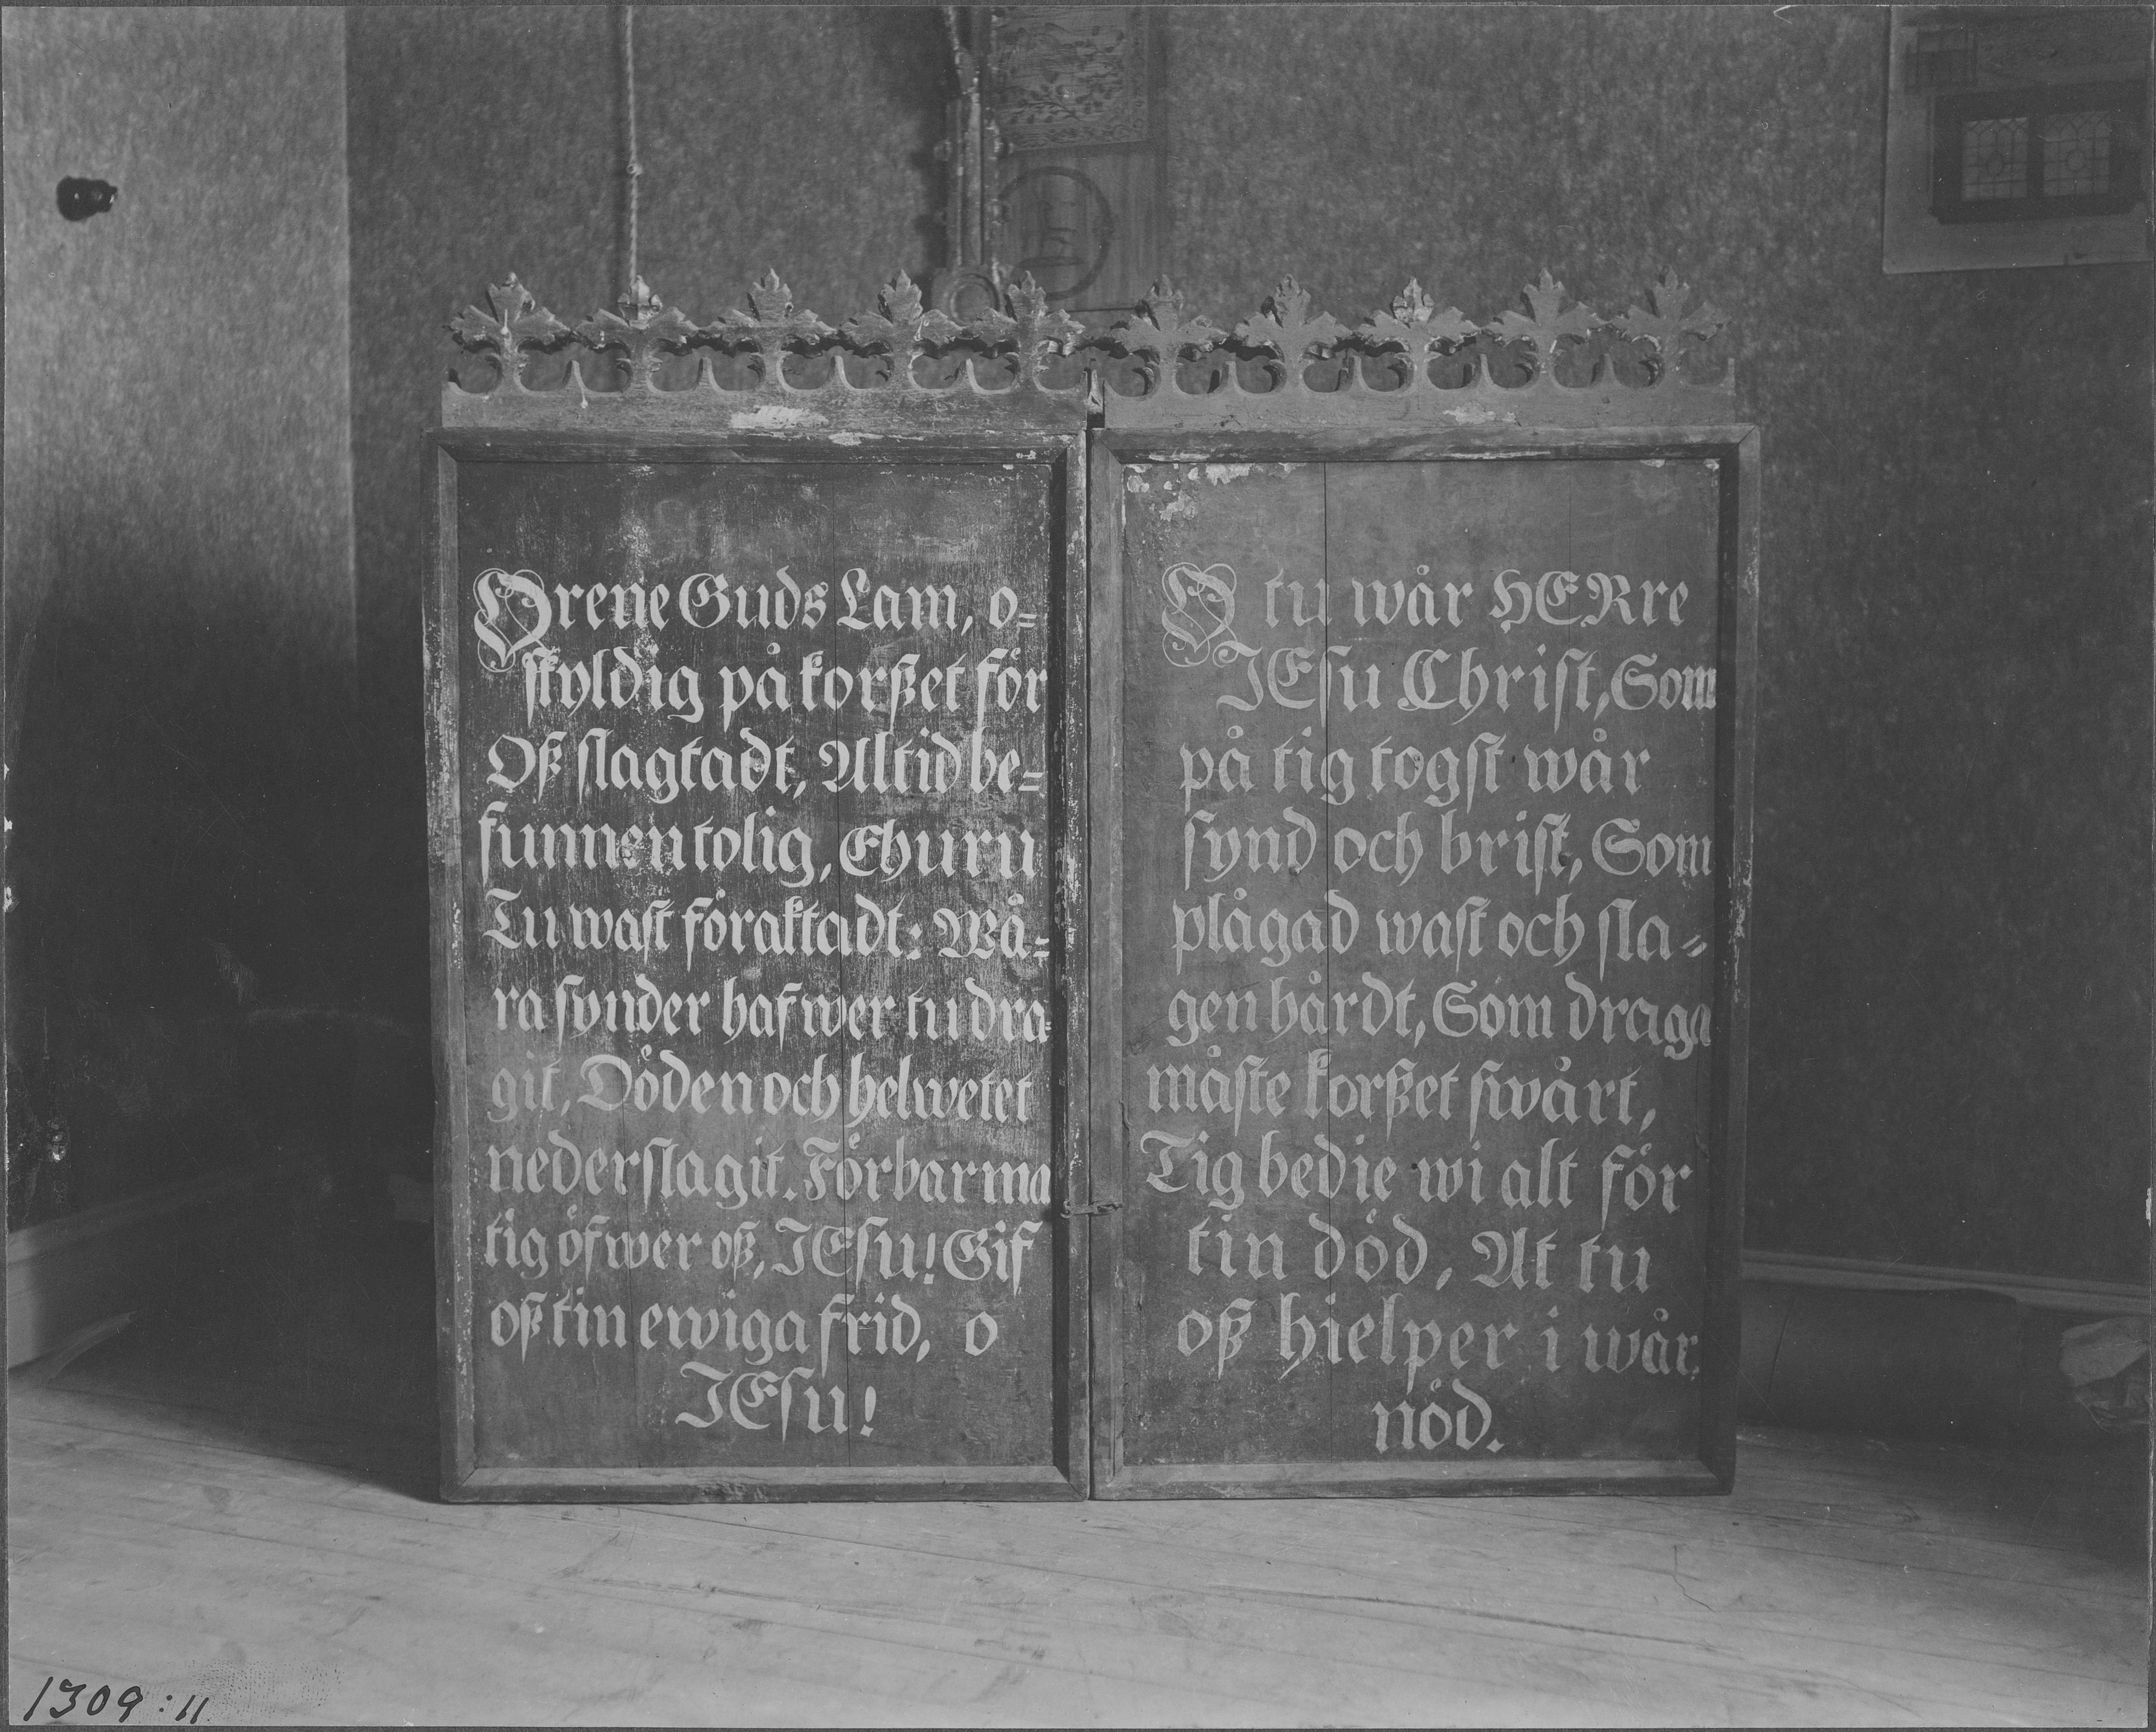 O rene Guds Lam, o=
skyldig på korßet för
Oß slagtadt, Altid be=
funnen tolig, Ehuru
Tu wast föraktadt: Wå=
ra synder hafwer tu dra=
git, Döden och helwetet
nederslagit. Förbarma
tig öfwer oß, JEsu! Gif
oß tin ewiga frid, o
JEsu!
O tu wår HERre
JEsu Christ, Som
på tig togst wår
synd och brist, Som
plågad wast och sla=
gen hårdt, Som draga
måste korßet swårt,
Tig bedie wi alt för
tin död, At tu
oß hielper i wår
nöd.
1309:11